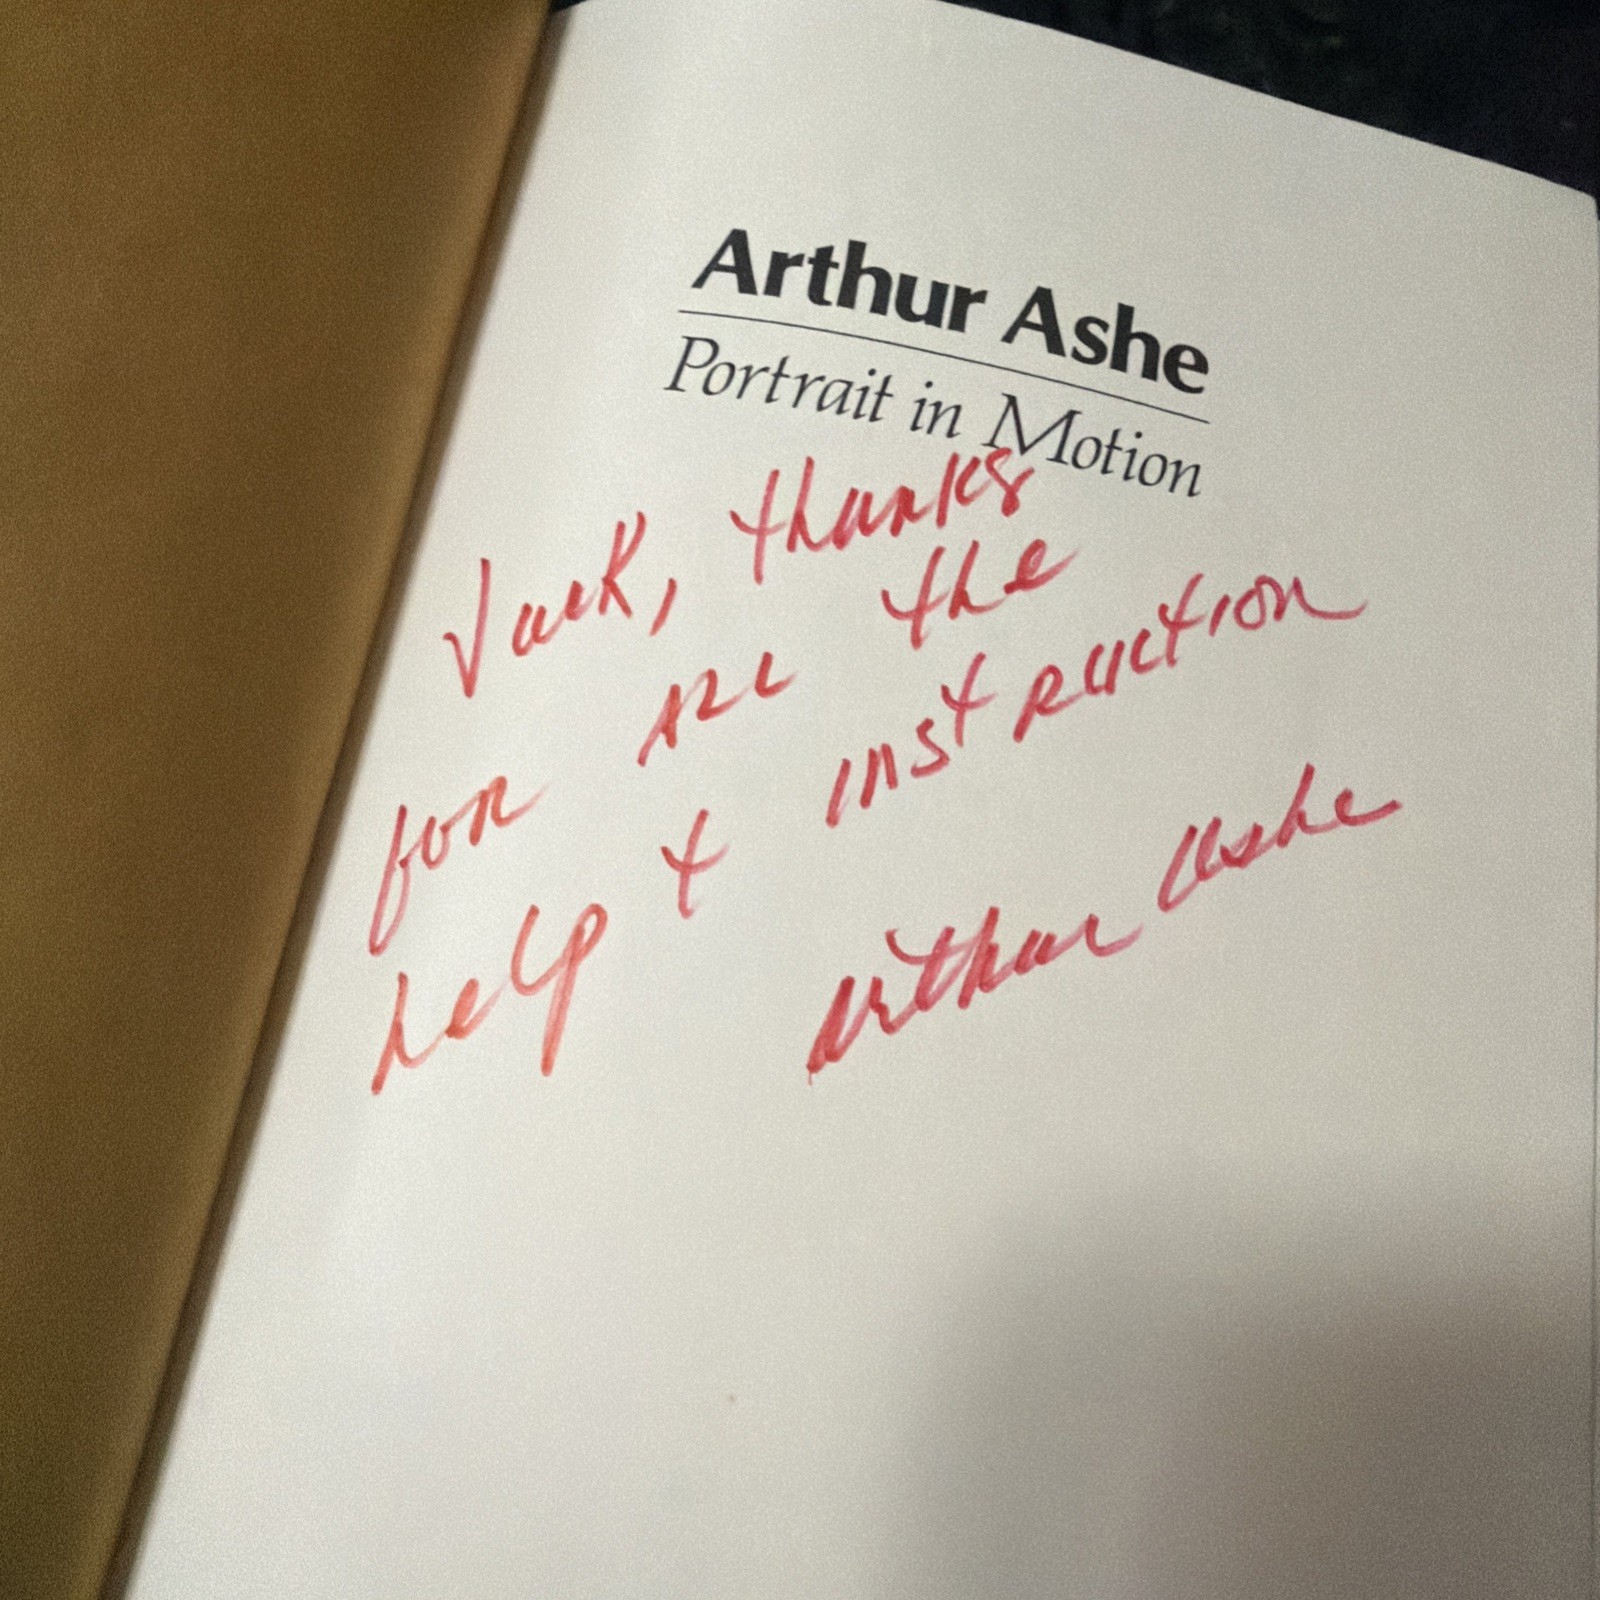 Arthur Ashe
Portrait in Motion
Jack, thanks
for all the
help + instruction
Arthur Ashe